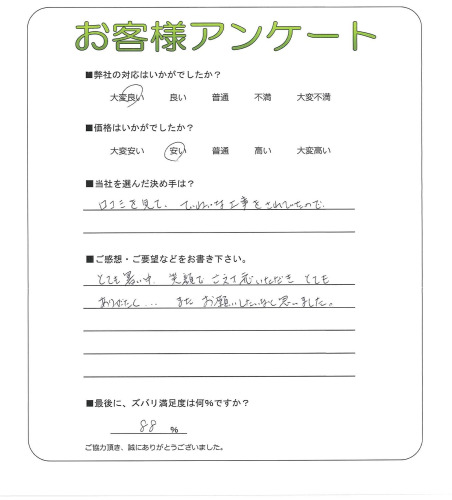 お客様アンケート
■弊社の対応はいかがでしたか？
大変良い 良い 普通 不満 大変不満
■価格はいかがでしたか？
大変安い 安い 普通 高い 大変高い
■当社を選んだ決め手は？
口コミを見て、ていねいな工事をされていたので、
■ご感想・ご要望などをお書き下さい。
とても暑い中、笑顔で 応いただき とても
ありがたく... また お願いしたいなと思いました。
■最後に、ズバリ満足度は何%ですか？
88 %
ご協力頂き、誠にありがとうございました。